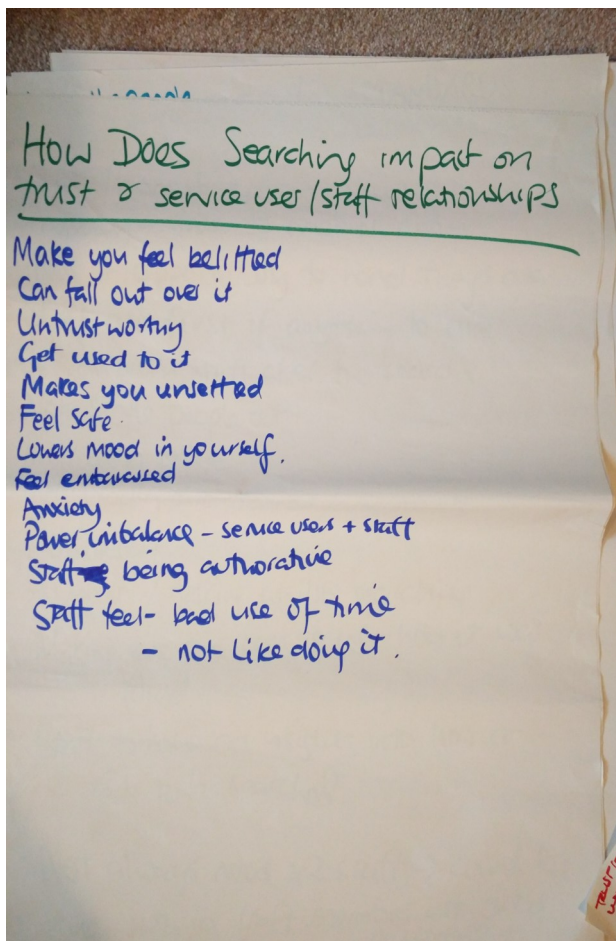 How Does Searching impact on
trust & service user/staff relationships
Make you feel belittled
Can fall out over it
Untrustworthy
Get used to it
Makes you unsettled
Feel safe.
Lowers mood in yourself.
Feel embarassed
Anxiety
Power imbalance - service users + staff
Staff being authorative
Staff feel - bad use of time
- not like doing it.